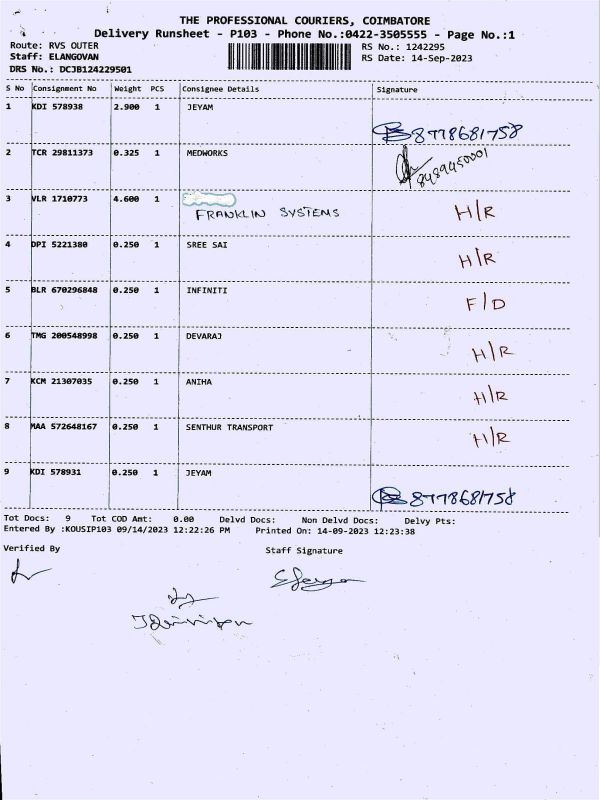 THE PROFESSIONAL COURIERS, COIMBATORE
Delivery Runsheet - P103 - Phone No.:0422-3505555 - Page No.:1
Route: RVS OUTER
RS No.: 1242295
Staff: ELANGOVAN
RS Date: 14-Sep-2023
DRS No.: DCJB124229501
S No Consignment No Weight PCS Consignee Details Signature
1 KDI 578938 2.900 1 JEYAM
8778681758
2 TCR 29811373 0.325 1 MEDWORKS
8489450001
3 VLR 1710773 4.600 1
FRANKLIN SYSTEMS H/R
4 DPI 5221380 0.250 1 SREE SAI
H/R
5 BLR 670296848 0.250 1 INFINITI
F/D
6 TMG 200548998 0.250 1 DEVARAJ
H/R
7 KCM 21307035 0.250 1 ANIHA
H/R
8 MAA 572648167 0.250 1 SENTHUR TRANSPORT
H/R
9 KDI 578931 0.250 1 JEYAM
8778681758
Tot Docs: 9 Tot COD Amt: 0.00 Delvd Docs: Non Delvd Docs: Delvy Pts:
Entered By :KOUSIP103 09/14/2023 12:22:26 PM Printed On: 14-09-2023 12:23:38
Verified By Staff Signature